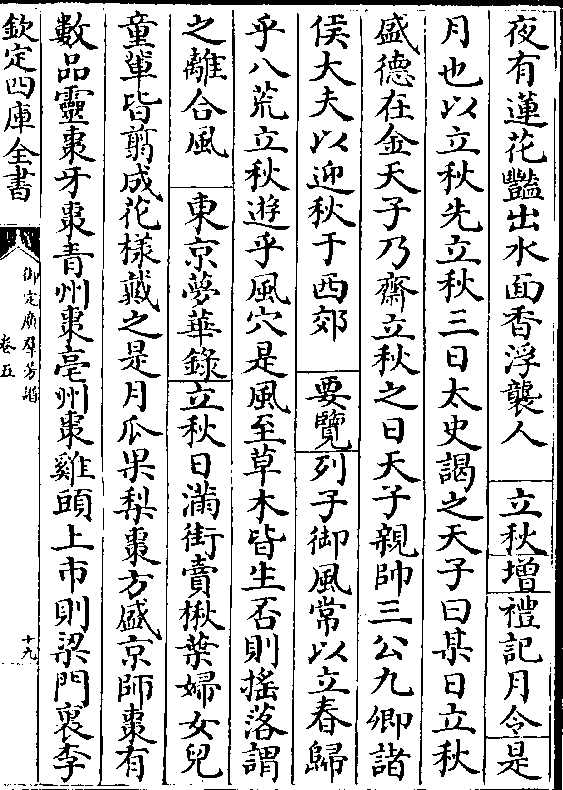 夜有蓮花豔出水面香浮襲人　立秋增禮記月令是
月也以立秋先立秋三日太史謁之天子曰某日立秋
盛德在金天子乃齋立秋之日天子親帥三公九卿諸
侯大夫以迎秋于西郊　要覽列子御風常以立春歸
乎八荒立秋遊乎風穴是風至草木皆生否則搖落謂
之離合風　東京夢華錄立秋日滿街賣楸葉婦女兒
童輩皆剪成花樣戴之是月瓜果梨棗方盛京師棗有
數品靈棗牙棗青州棗亳州棗雞頭上市則梁門裏李
欽定四庫全書
御定廣羣芳譜
卷五
十九